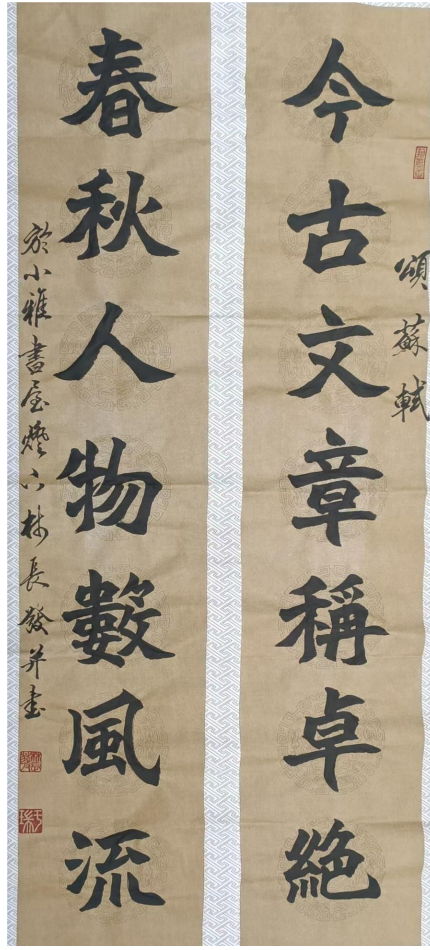 頌蘇軾
今古文章稱卓絕
春秋人物數風流
於小雅書屋燈下林長發並書